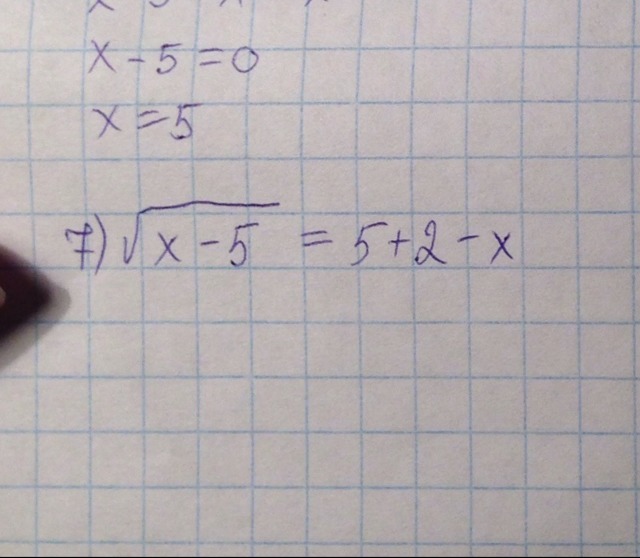 x - 5 = 0
x = 5
7) √(x - 5) = 5 + 2 - x